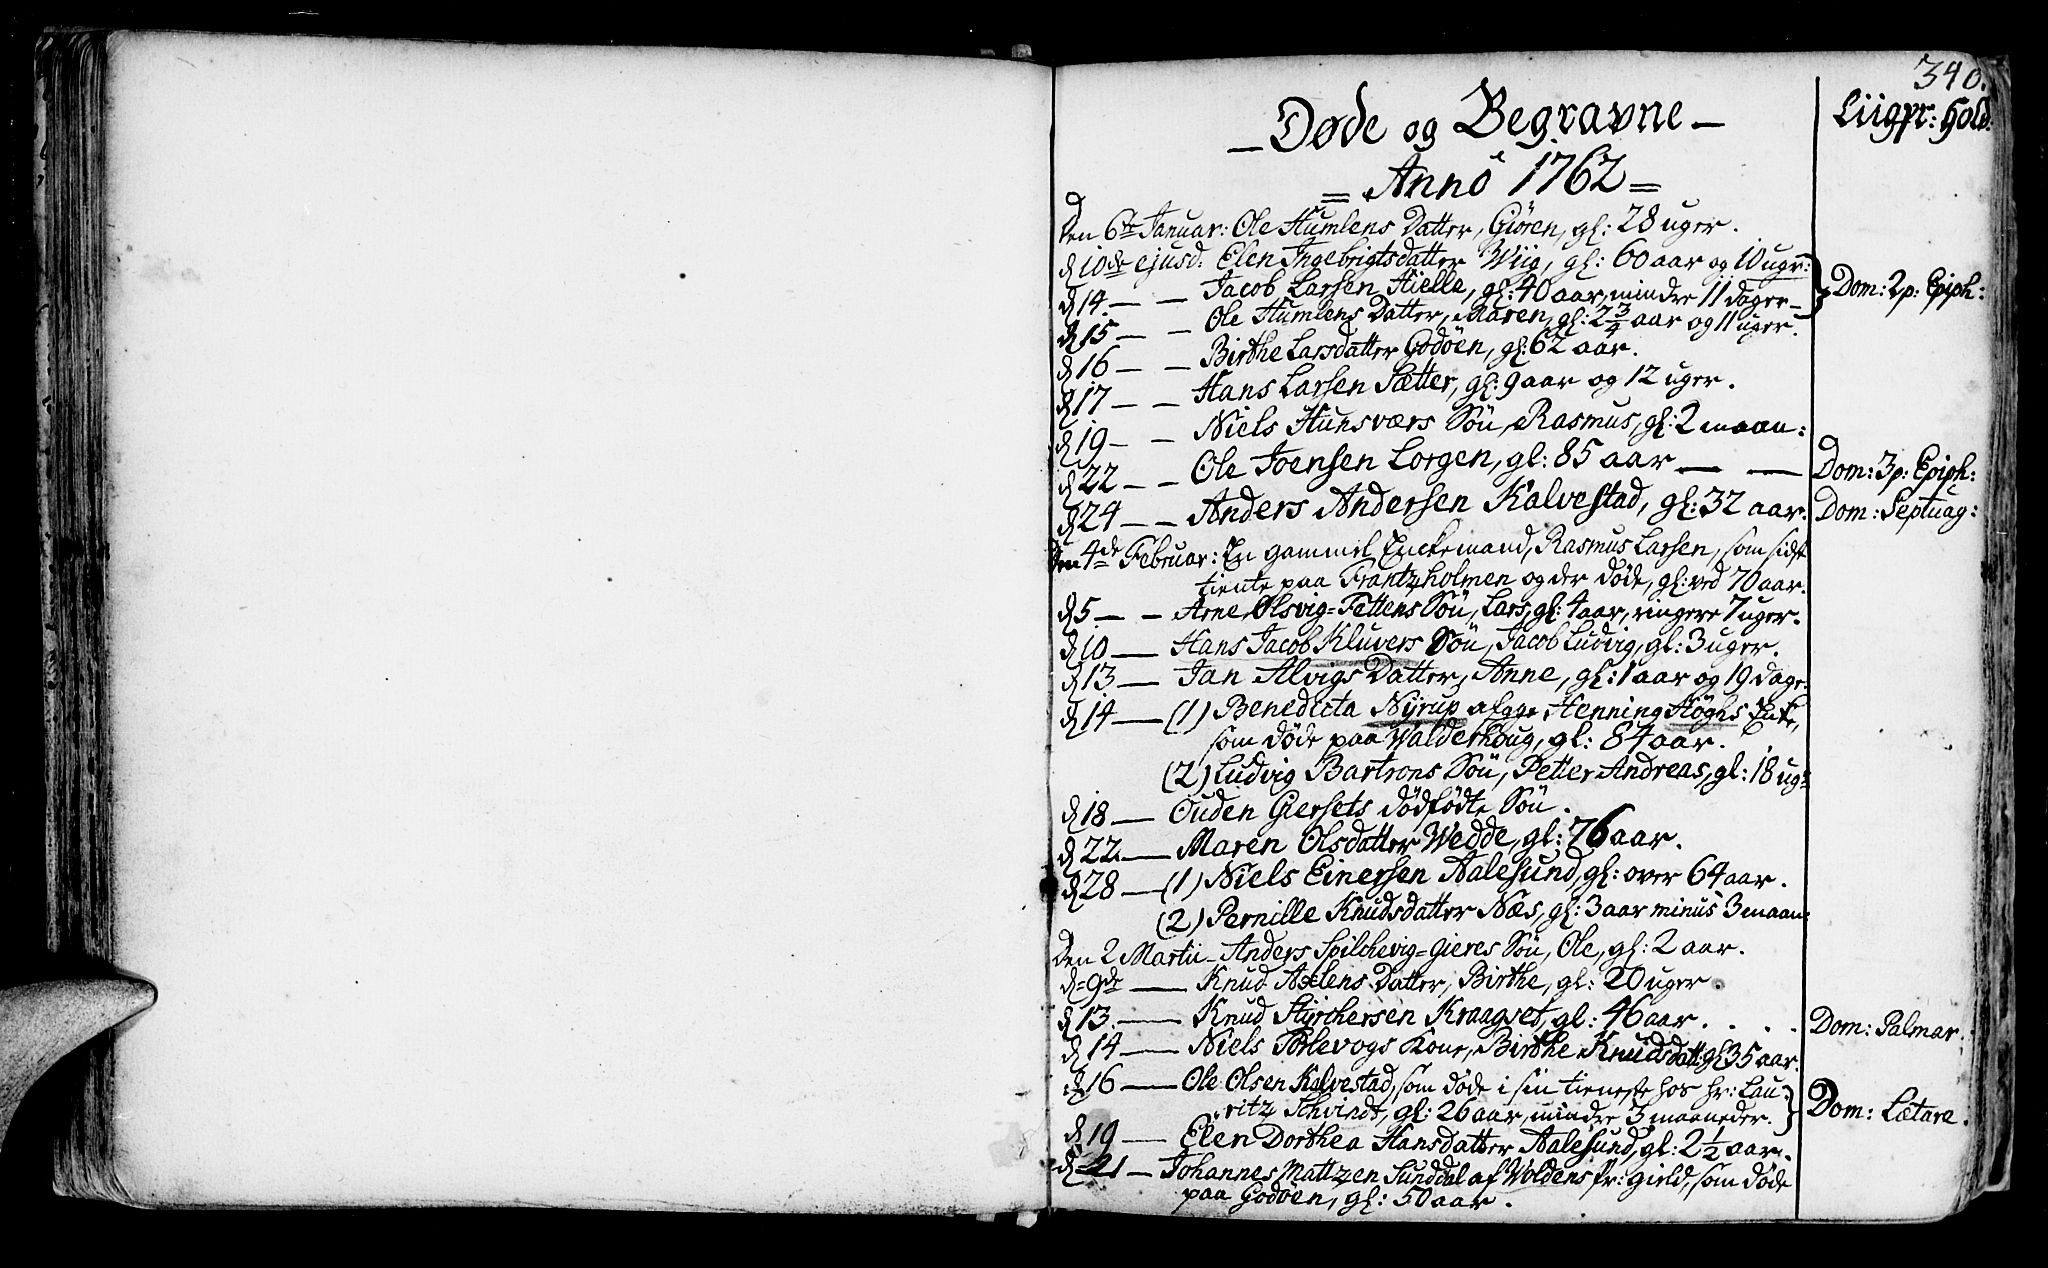 340.
Liigpr: hold.
— Døde og Begravne —
= Anno 1762 =
Den 6te Januar: Ole Humlens Datter, Giøren, gl: 28 uger.
d 10de ejusd: Elen Ingebrigtsdatter Wiig, gl: 60 aar og 10 ugr:
d 14 — — Jacob Larsen Hielle, gl: 40 aar, mindre 11 dager — } Dom: 2 p: Epiph:
d 15 — — Ole Humlens Datter, Maren, gl: 2 3/4 aar og 11 uger.
d 16 — — Birthe Larsdatter Godøen, gl: 62 aar.
d 17 — — Hans Larsen Sætter, gl: 9 aar og 12 uger.
d 19 — — Niels Hunsværs Søn, Rasmus, gl: 2 maan:
d 22 — — Ole Joensen Lorgen, gl: 85 aar — — Dom: 3 p: Epiph:
d 24 — — Anders Andersen Kalvestad, gl: 32 aar. Dom: Septuag:
Den 4de Februar: En gammel Enckemand, Rasmus Larsen, som sidst
tiente paa Frantzholmen og der døde, gl: ved 70 aar.
d 5 — — Arne Olsvig-Fettens Søn, Lars, gl: 4 aar, ringere 7 uger.
d 10 — Hans Jacob Kluvers Søn, Jacob Ludvig, gl: 3 uger.
d 13 — Jan Alvigs Datter, Anne, gl: 1 aar og 19 dage.
d 14 — (1) Benedicta Nyrup afgge Henning Høghs Enke,
som døde paa Walderhoug, gl: 84 aar.
(2) Ludvig Bartrons Søn, Petter Andreas, gl: 18 ugr
d 18 — Ouden Giersets dødfødte Søn.
d 22 — Maren Olsdatter Wedde, gl: 76 aar.
d 28 — (1) Niels Einersen Aalesund, gl: over 64 aar.
(2) Pernille Knudsdatter Næs, gl: 3 aar minus 3 maan:
Den 2 Martii — Anders Spilchevig-Gieres Søn, Ole, gl: 2 aar.
d = 9de — Knud Axlens Datter, Birthe, gl: 20 uger.
d 13. — Knud Styrchersen Kraagset, gl: 46 aar. . . . Dom: Palmar:
d 14 — Niels Kone, Birthe Knudsdatt: gl 35 aar.
d 16 — Ole Olsen Kalvestad, som døde i sin tieneste hos hr: Lau-
ritz Schvindt, gl: 26 aar, mindre 3 maaneder. } Dom: Lætare.
d 19 — Elen Dorthea Hansdatter Aalesund, gl: 2 1/2 aar.
d 21 — Johannes Mattzen Sunddal af Woldens pr: gield, som døde
paa Godøen, gl: 50 aar.